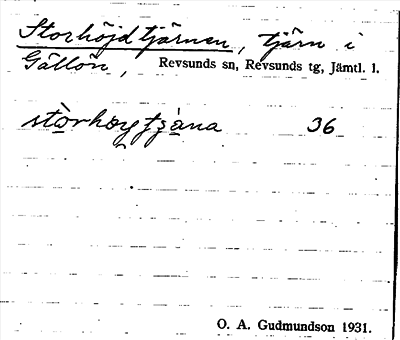 Storhöjdtjärnen, tjärn i
Gällön, Revsunds sn, Revsunds tg, Jämtl. l.
36
O. A. Gudmundson 1931.